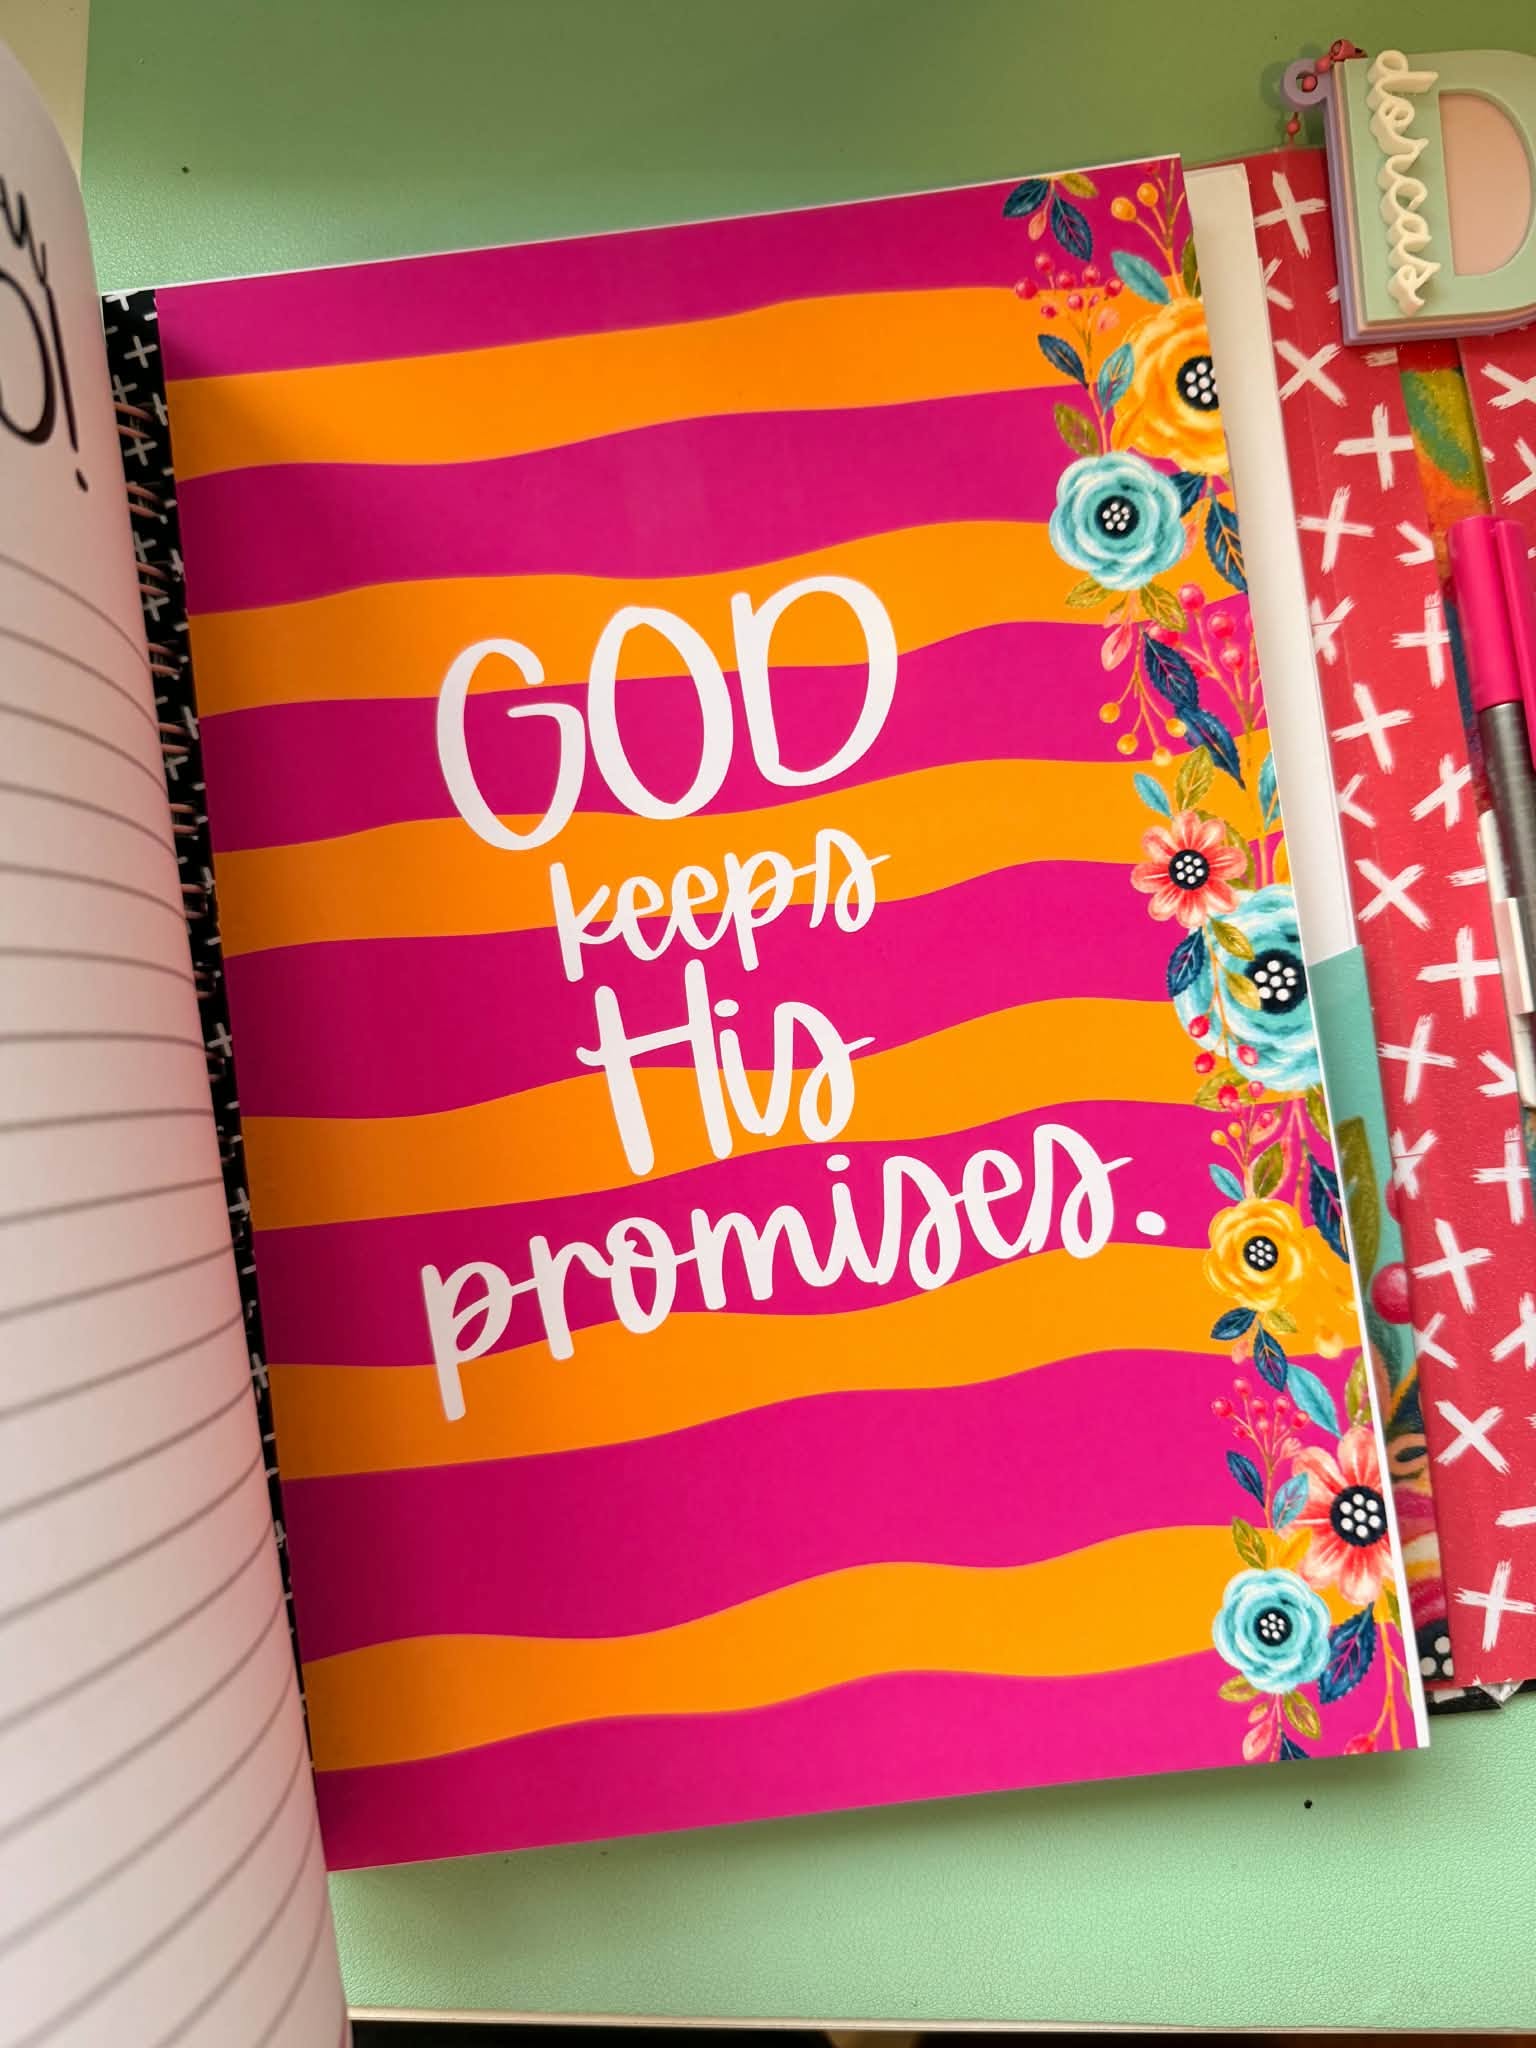 GOD
keeps
His
promises.
dorcas
D